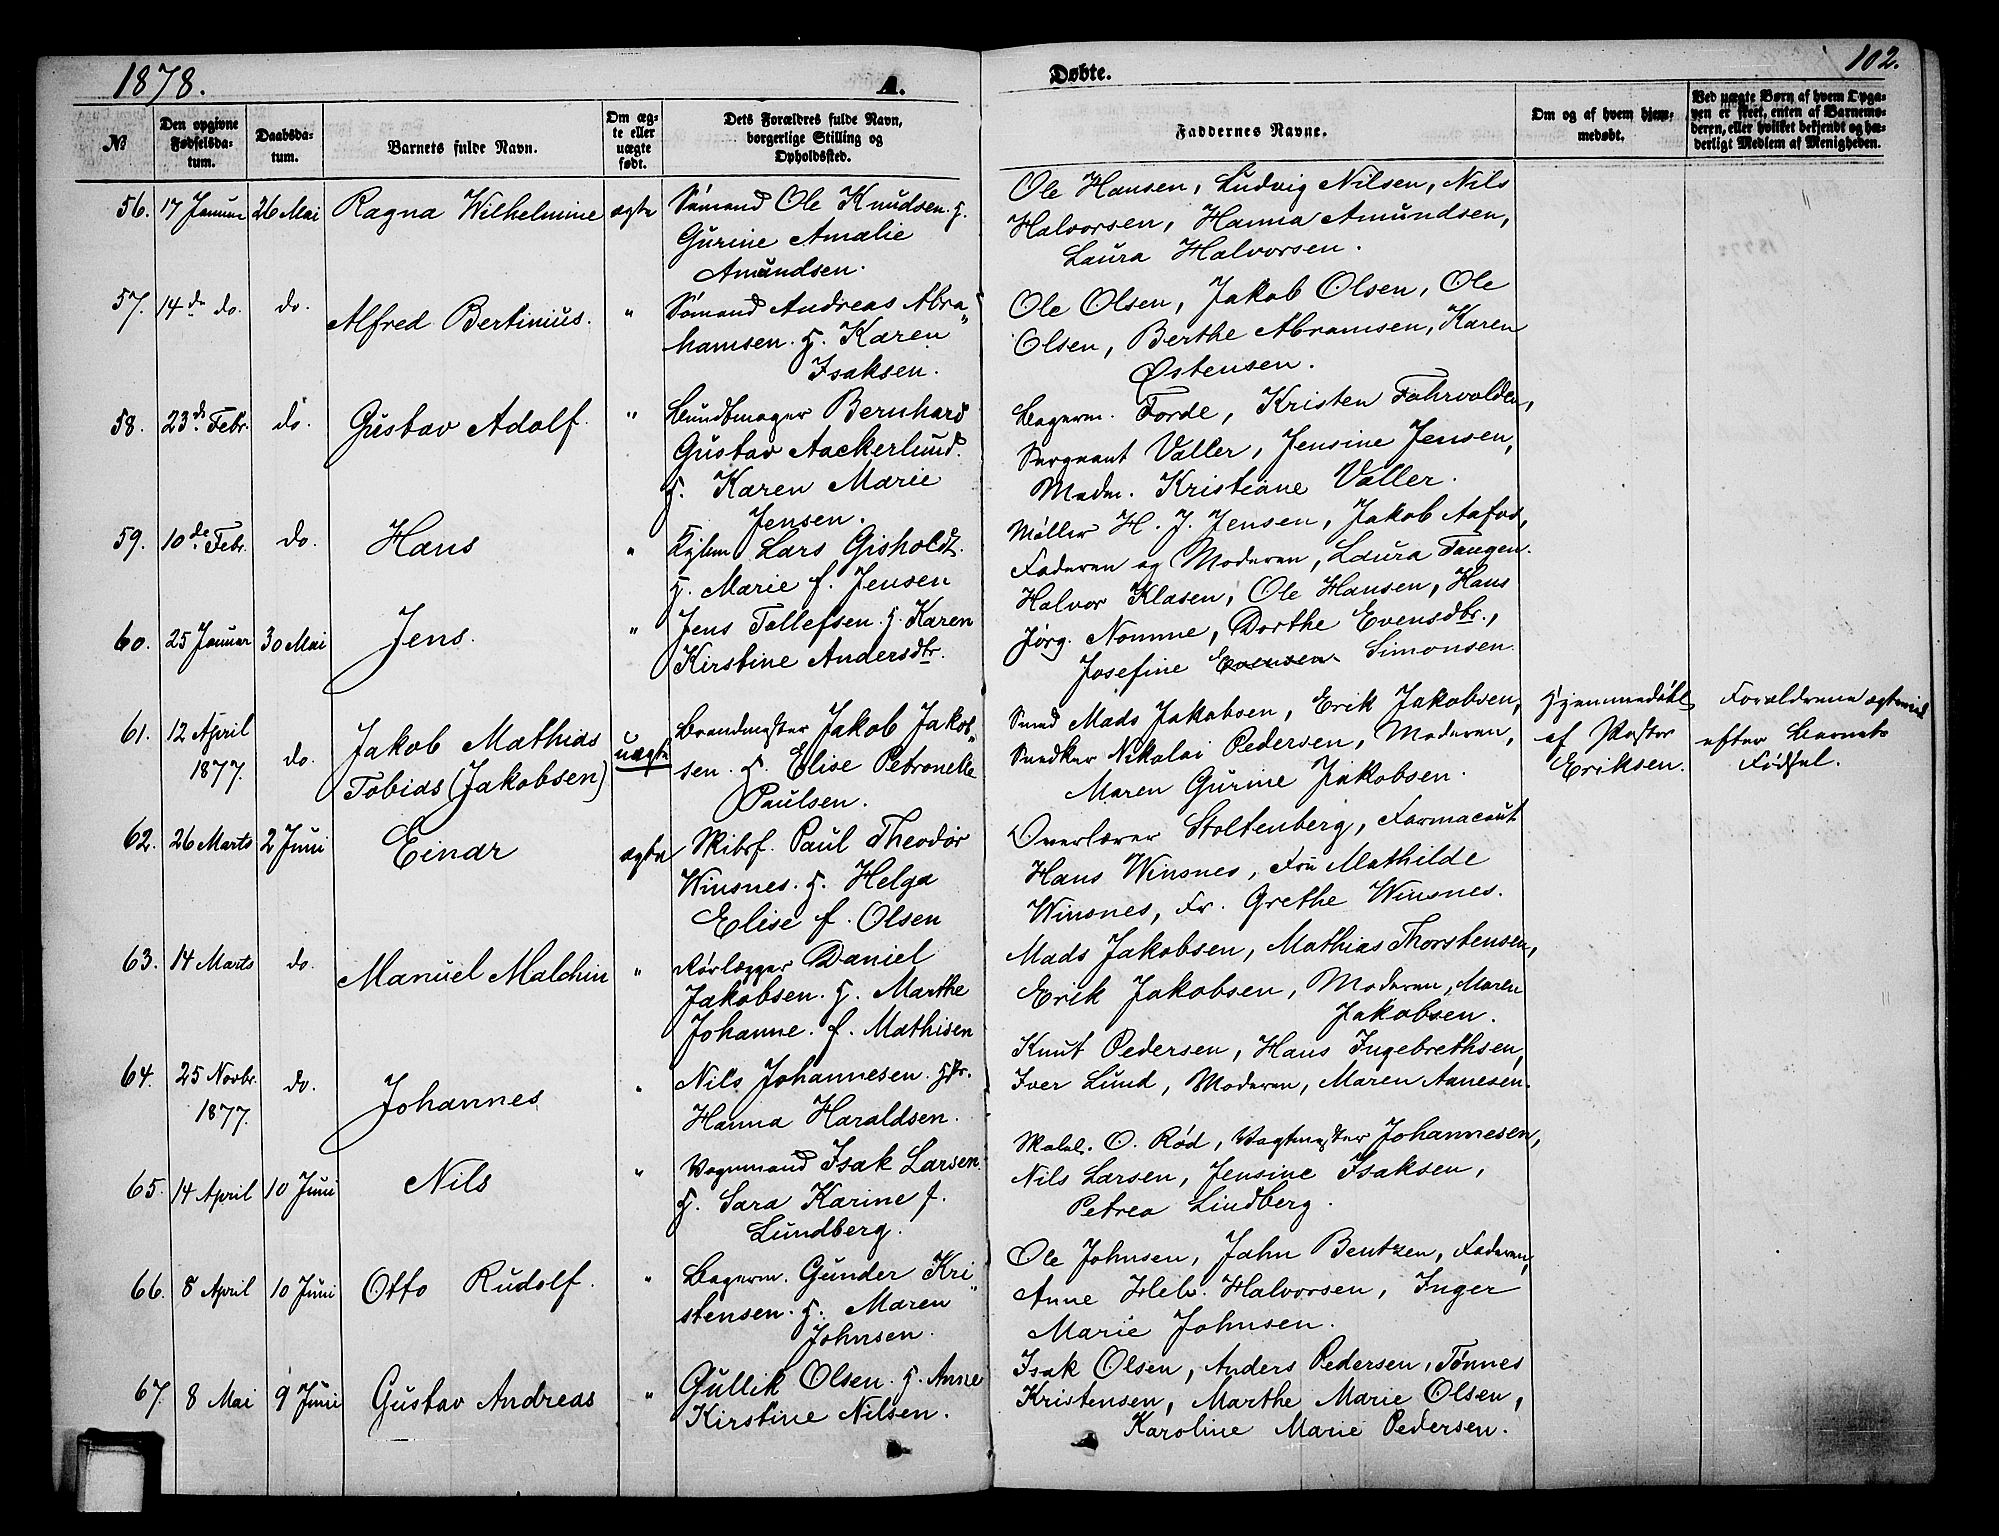 1878.
A.
Døbte.
102.
№
Den opgivne
Fødselsda-
tum.
Daabsda-
tum.
Barnets fulde Navn.
Om æg-
te eller
uægte
født.
Dets Forældres fulde Navn,
borgerlige Stilling og
Opholdssted.
Faddernes Navne.
Om og af hvem hjem-
medøbt.
Ved uægte Børn af hvem Opga-
ven er skeet, enten af Barnemo-
deren, eller hvilket bekjendt og hæ-
derligt Medlem af Menigheden.
56. 17 Januar 26 Mai Ragna Wilhelmine ægte Sømand Ole Knudsen. H.
Gurine Amalie
Amundsen.
Ole Hansen, Ludvig Nilsen, Nils
Halvorsen, Hanna Amundsen,
Laura Halvorsen.
57. 14de do. do. Alfred Bertinius. " Sømand Andreas Abra-
hamsen. H. Karen
Isaksen.
Ole Olsen, Jakob Olsen, Ole
Olsen, Berthe Abramsen, Karen
Østensen.
58. 23de Febr. do. Gustav Adolf. " Bundtmager Bernhard
Gustav Aackerlund.
H. Karen Marie
Jensen.
Bagerm. Forde, Kristen
Sergeant Valler, Jensine Jensen,
Madm. Kristiane Valler.
59. 10de Febr. do. Hans " Lars Gisholdt.
H. Marie f. Jensen
Møller H. J. Jensen, Jakob Aafos,
Faderen og Moderen, Laura Tangen.
60. 25 Januar 30 Mai Jens. " Jens Tollefsen H. Karen
Kirstine Andersdtr.
Halvor Klasen, Ole Hansen, Hans
Jørg. Nomme, Dorthe Evensdtr.,
Josefine Evensen Simonsen.
61. 12 April
1877. do. Jakob Mathias
Tobias (Jakobsen) uægte Brandmester Jakob Jakob-
sen. H. Elise Petronelle
Paulsen.
Smed Mads Jakobsen, Erik Jakobsen,
Snedker Nikolai Pedersen, Moderen,
Maren Gurine Jakobsen.
Hjemmedøbt
af Pastor
Eriksen.
Forældrene ægteviet
efter Barnets
Fødsel.
62. 26 Marts 2 Juni Einar ægte Skibsf. Paul Theodor
Winsnes. H. Helga
Elise f. Olsen
Overlærer Stoltenberg, Farmaceut
Hans Winsnes, Fru Mathilde
Winsnes, Fr. Grethe Winsnes.
63. 14 Marts do. Manuel Malchin " Rørlægger Daniel
Jakobsen. H. Marthe
Johanne. f. Mathisen
Mads Jakobsen, Mathias Thorstensen,
Erik Jakobsen, Moderen, Maren
Jakobsen.
64. 25 Novbr.
1877. do. Johannes " Nils Johannesen.
Hanna Haraldsen.
Knut Pedersen, Hans Ingebrethsen,
Iver Lund, Moderen, Maren Aanesen.
65. 14 April 10 Juni Nils " Vognmand Isak Larsen.
H. Sara Karine f.
Lundberg.
O. Rød, Vagtmester Johannesen,
Nils Larsen, Jensine Isaksen,
Petrea Lindberg.
66. 8 April 10 Juni Otto Rudolf. " Bagerm. Gunder Kri-
stensen. H. Maren
Johnsen.
Ole Johnsen, Jahn Bentzen, Faderen,
Anne Halvorsen, Inger
Marie Johnsen.
67. 8 Mai 9 Juni Gustav Andreas " Gullik Olsen. H. Anne
Kirstine Nilsen.
Isak Olsen, Anders Pedersen, Tønnes
Kristensen, Marthe Marie Olsen,
Karoline Marie Pedersen.